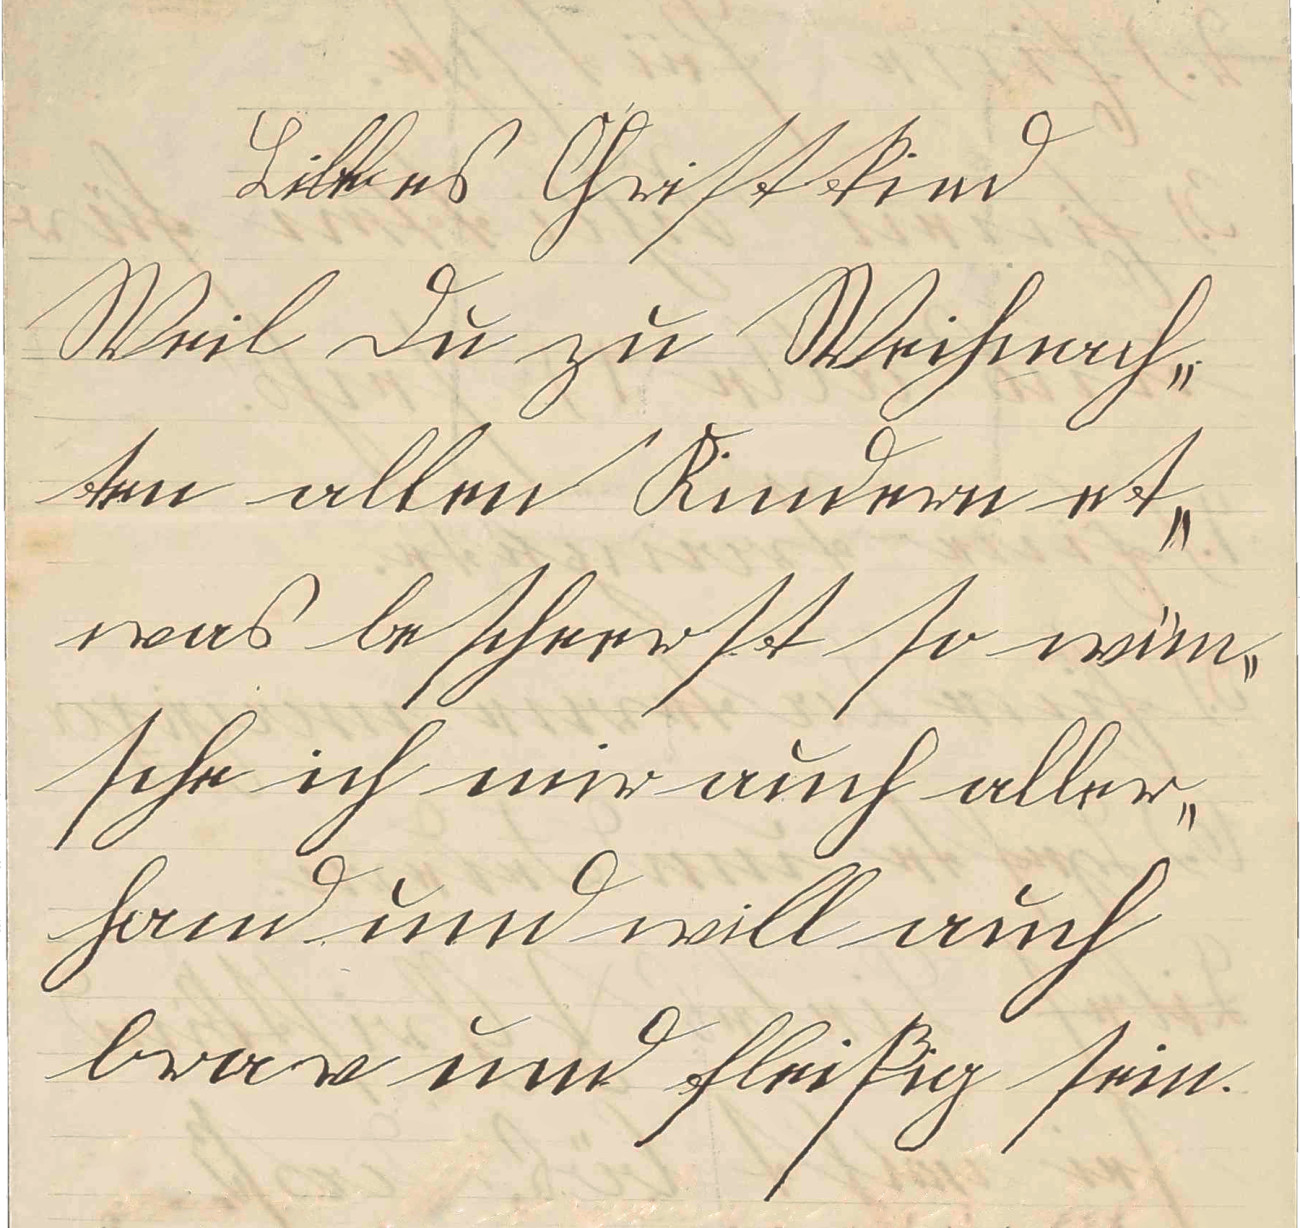 Liebes Christkind
Weil du zu Weihnach„
ten allen Kindern et„
was bescheerst so wün„
sche ich mir auch aller„
hand und will auch
brav und fleißig sein.